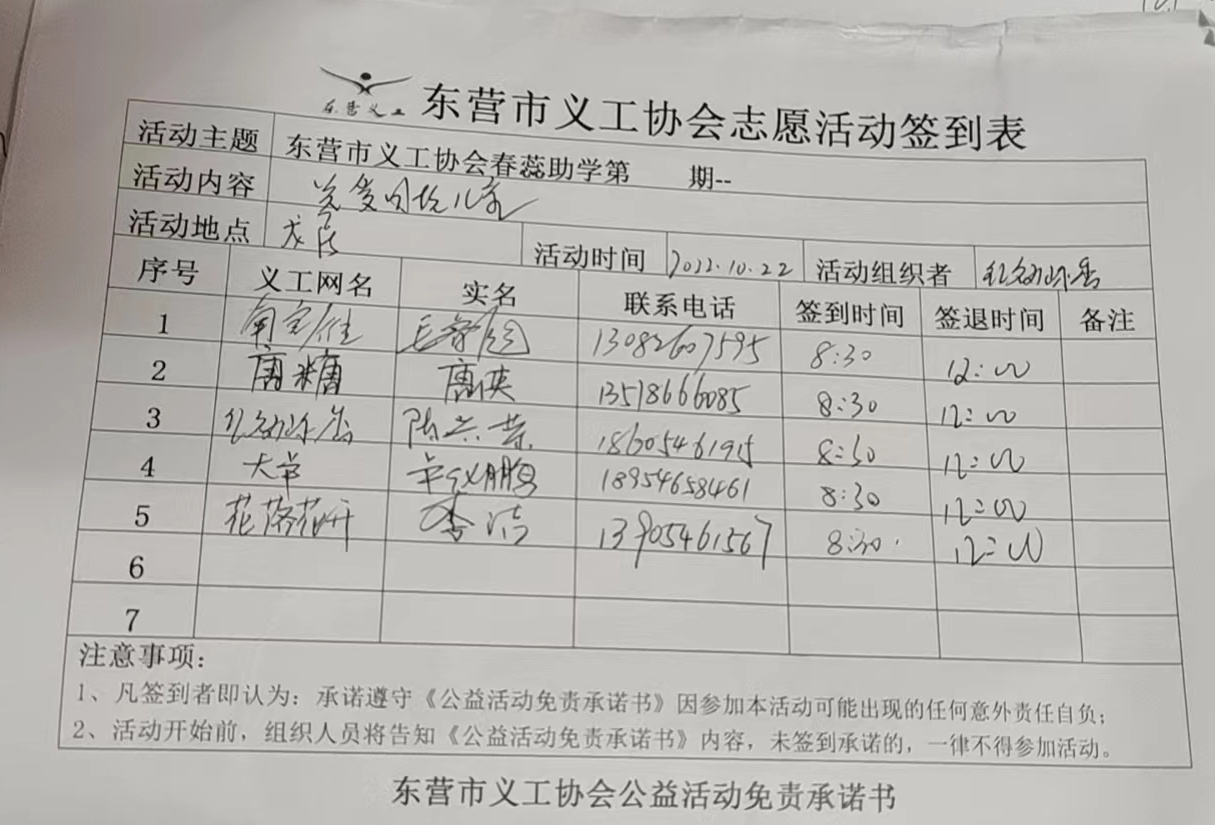 东营义工
东营市义工协会志愿活动签到表
活动主题 东营市义工协会春蕊助学第 期--
活动内容 关爱困境儿童
活动地点 龙居 活动时间 2022.10.22 活动组织者
序号 义工网名 实名 联系电话 签到时间 签退时间 备注
1 13082607595 8:30 12:00
2 唐糖 唐侠 13518666085 8:30 12:00
3 陈兴荣 18605461915 8:30 12:00
4 大章 18954658461 8:30 12:00
5 花落花开 李洁 13905461567 8:30 12:00
6
7
注意事项：
1、凡签到者即认为：承诺遵守《公益活动免责承诺书》因参加本活动可能出现的任何意外责任自负；
2、活动开始前，组织人员将告知《公益活动免责承诺书》内容，未签到承诺的，一律不得参加活动。
东营市义工协会公益活动免责承诺书